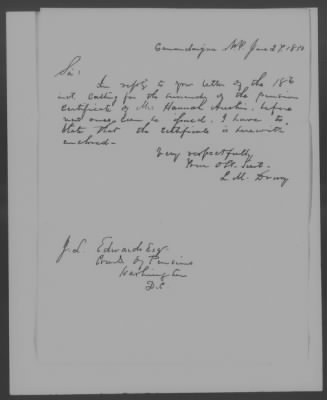 Canandaigua N.Y. June 27. 1850
Sir:
In reply to your letter of the 18th
inst. calling for the of the pension
certificate of Mrs Hannah Austin, before
new ones can be issued. I have to
state that the certificate is herewith
enclosed-
Very respectfully
Your Obt. Servt.
L. M. Drury
J. L. Edwards Esqr.
Comr. of Pensions
Washington
D.C.